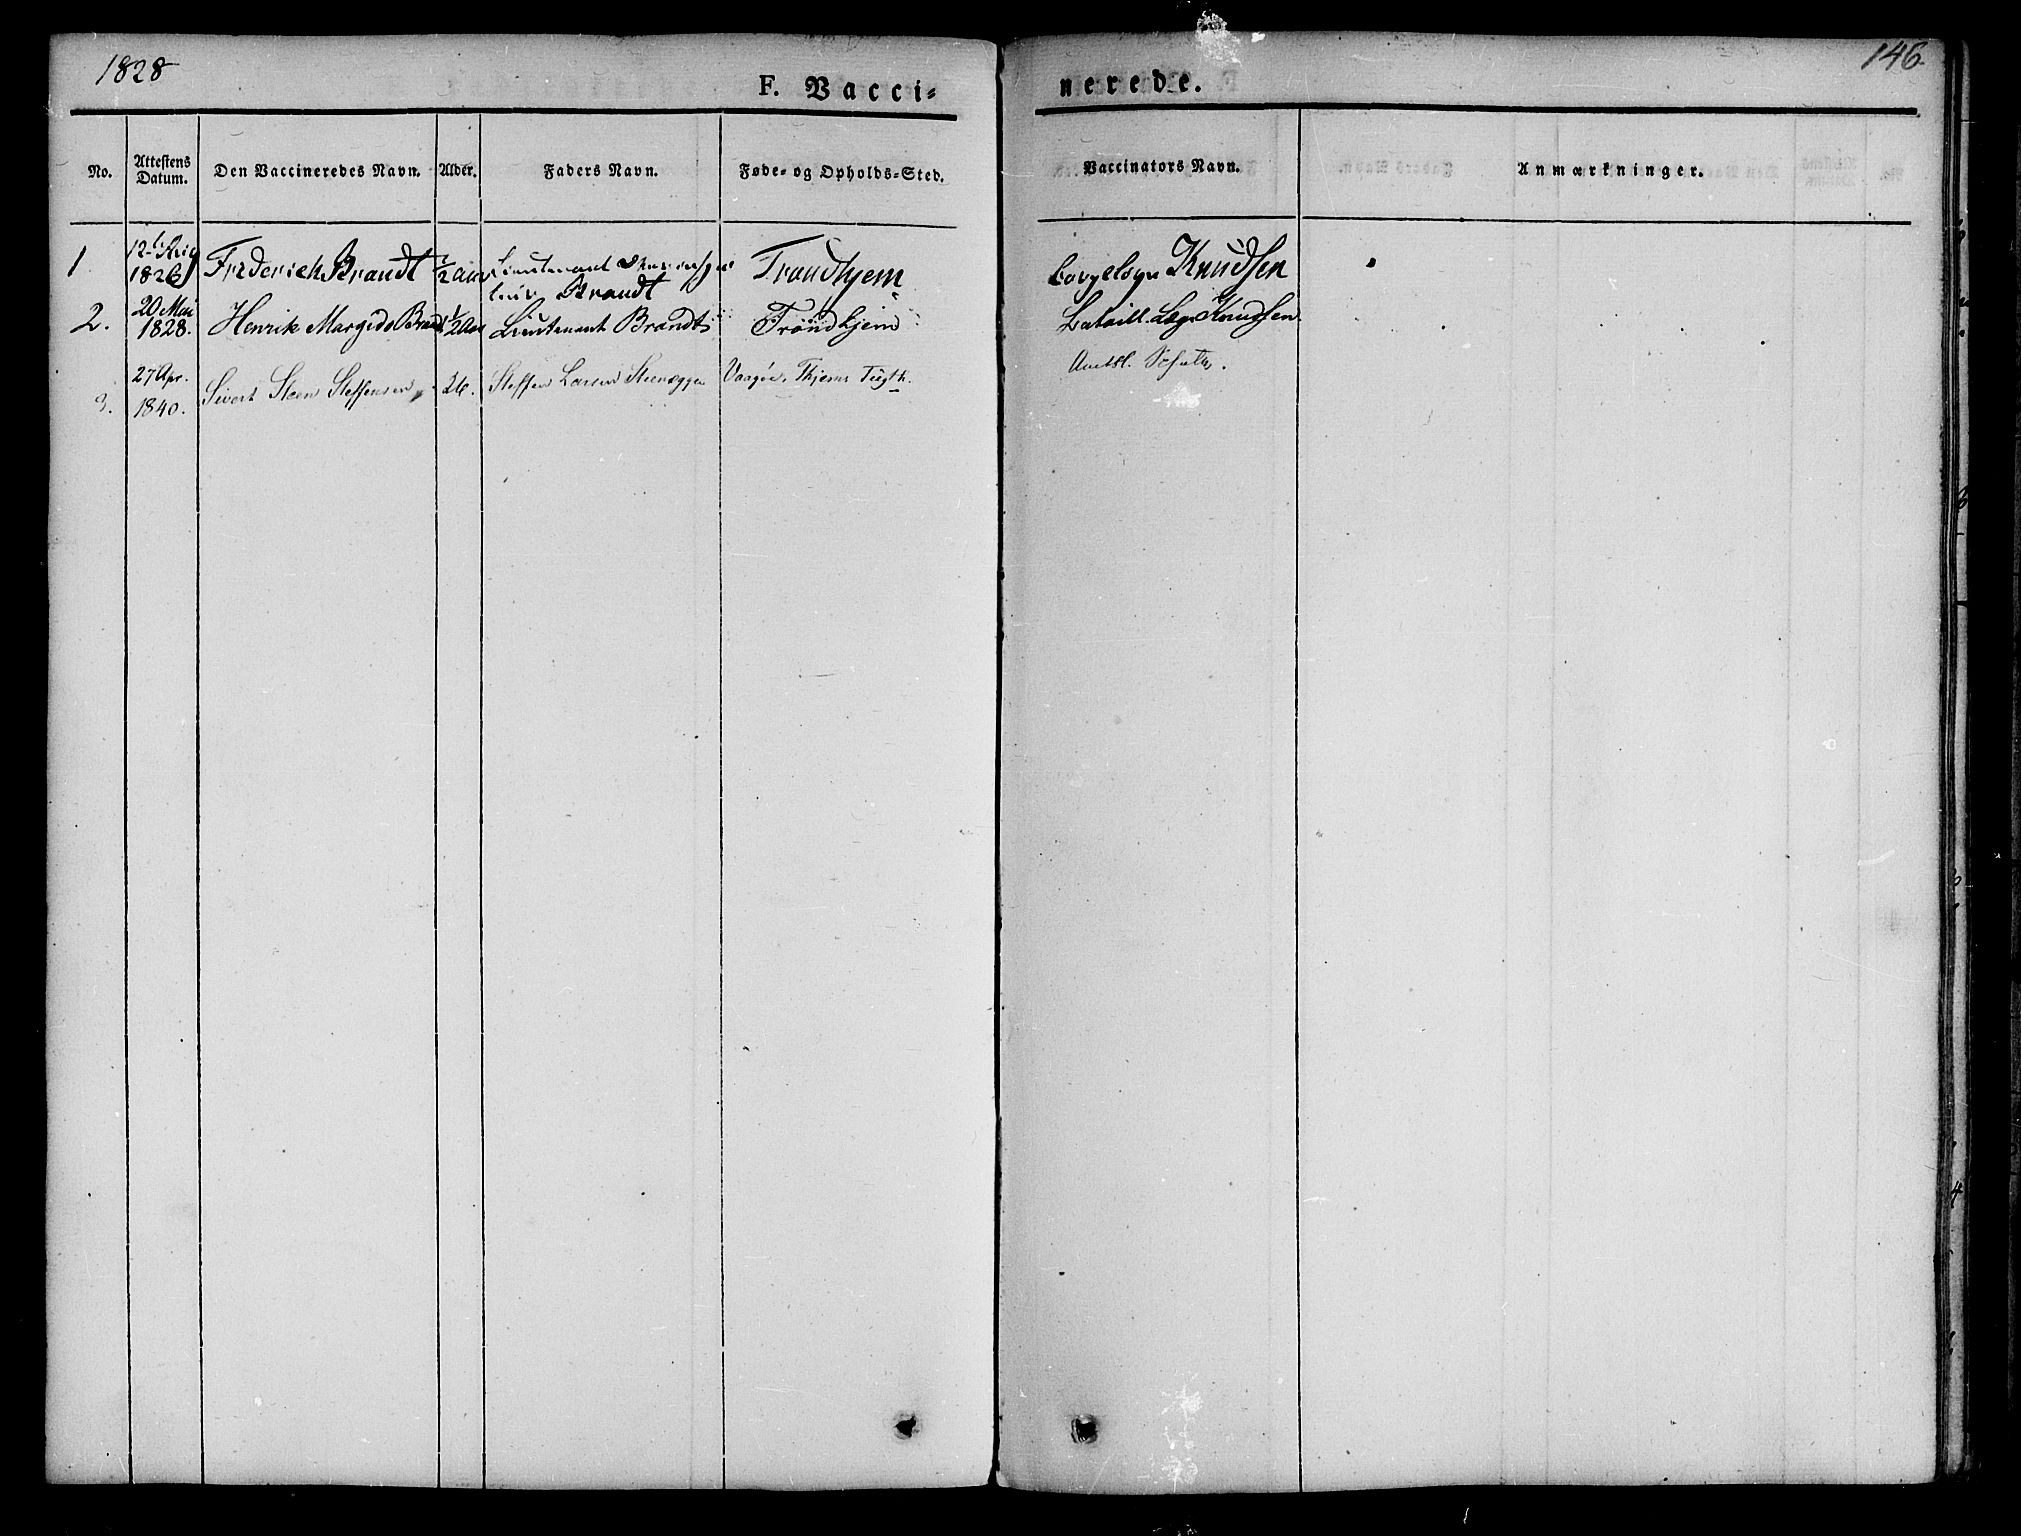 1828
146
F. Vacci=
nerede.
No.
Attestens Datum.
Den Vaccineredes Navn.
Alder.
Faders Navn.
Føde- og Opholds-Sted.
Vaccinators Navn.
Anmærkninger.
1 12 Aug 1826 Frederich Brandt 1/2 aar Lieutenant Brandt Trondhjem Knudsen
2. 20 Mai 1828. Henrik Margido Brandt 1/2 aar Lieutenant Brandt Trondhjem Bataill. Knudsen
3. 27 Apr. 1840. Sivert Steen Steffensen 26. Steffen Larsen Vaagøe, Thjems